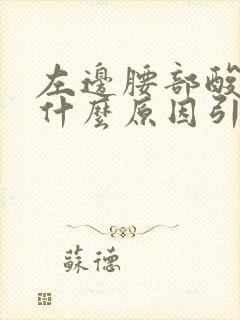 左邊腰部酸
什麼原因引
蘇德